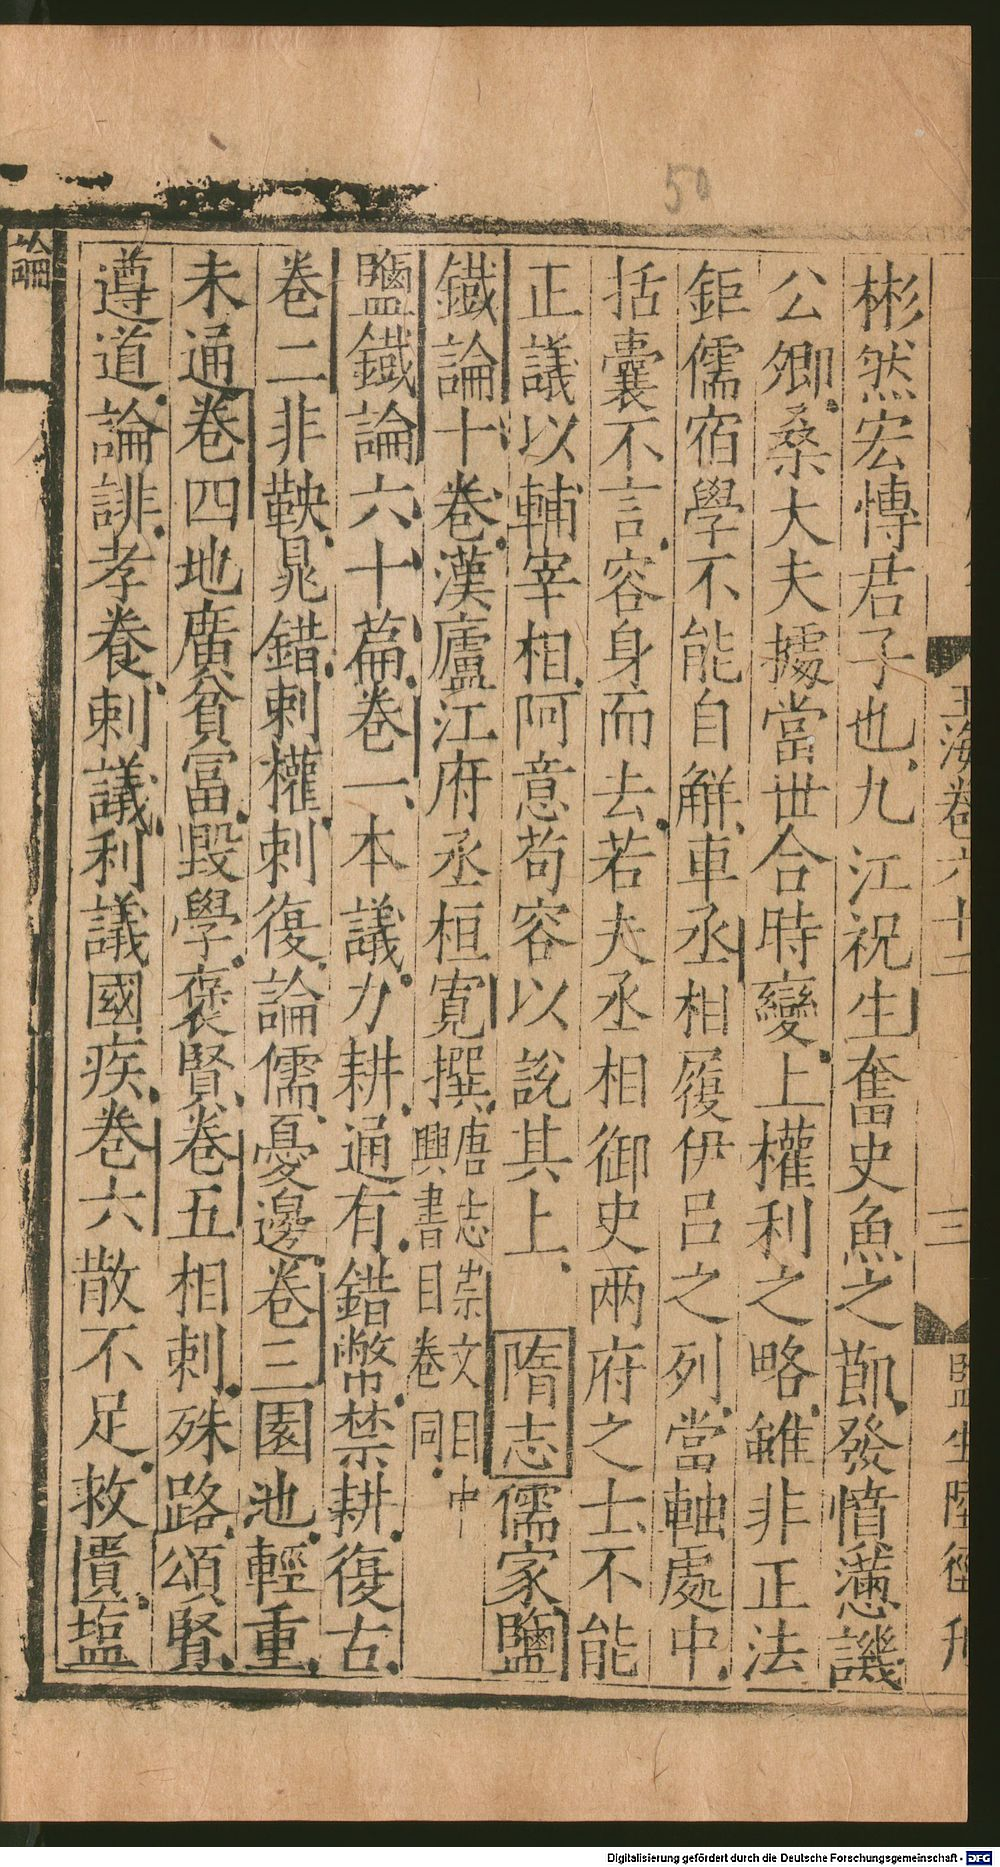 彬然宏慱君子也九江祝生奮史魚之節發憤懣譏
公卿桑大夫據當世合時變上權利之略雖非正法
鉅儒宿學不能自解車丞相履伊呂之列當軸處中
括囊不言容身而去若夫丞相御史兩府之士不能
正議以輔宰相阿意苟容以說其上隋志儒家鹽
鐵論十卷漢廬江府丞桓寬撰唐志崇文目中
興書目卷同
鹽鐵論六十篇卷一本議力耕通有錯幣禁耕復古
卷二非鞅晁錯刺權刺復論儒憂邊卷三園池輕重
未通卷四地廣貧富毀學褒賢卷五相刺殊路頌賢
遵道論誹孝養刺議利議國疾卷六散不足救匱塩
論
玉海卷六十二
三
監生陸徑刊
50
Digitalisierung gefördert durch die Deutsche Forschungsgemeinschaft - DFG